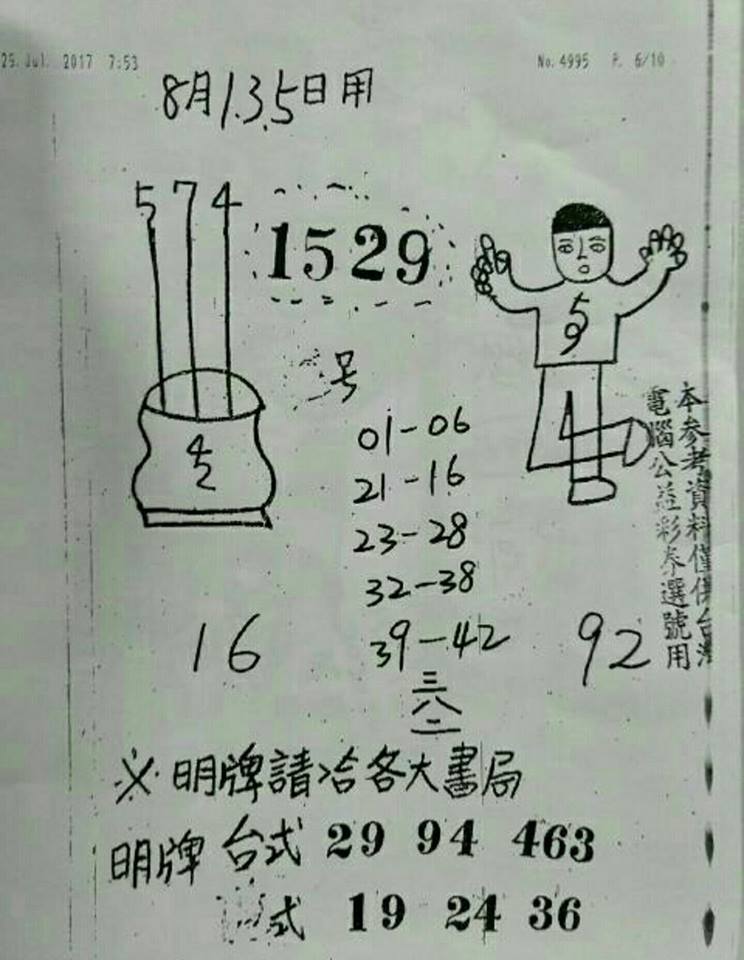 25. Jul. 2017 7:53
No. 4995 P. 6/10
8月1.3.5日用
5 7 4
1529
号
01-06
21-16
23-28
32-38
39-42
三
六
二
16
92
本参考資料僅供台灣
電腦公益彩券選號用
※明牌請洽各大書局
明牌 台式 29 94 463
式 19 24 36